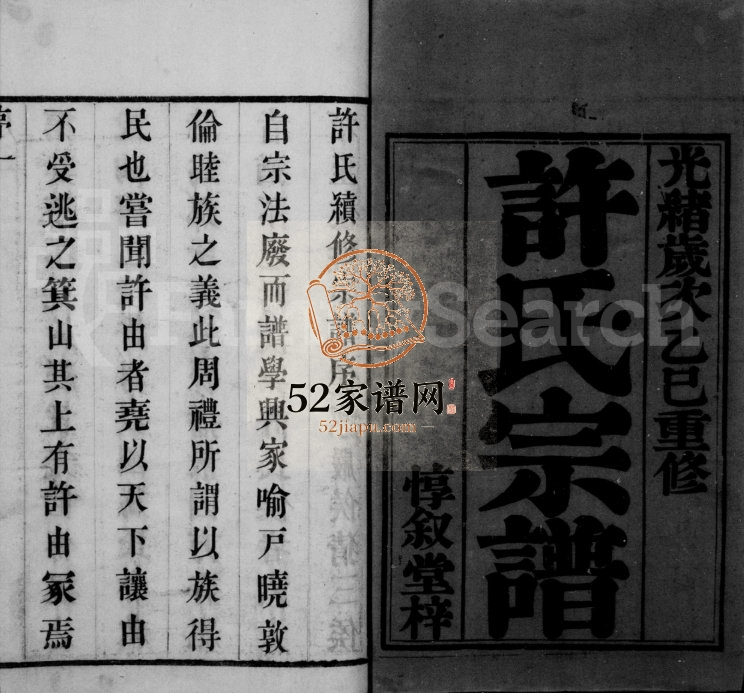 光緒歲次乙巳重修
許氏宗譜
惇叙堂梓
許氏續修宗譜序
自宗法廢而譜學興家喻戸曉敦
倫睦族之義此周禮所謂以族得
民也嘗聞許由者堯以天下讓由
不受逃之箕山其上有許由冢焉
序一
52家谱网
52jiapu.com
Search